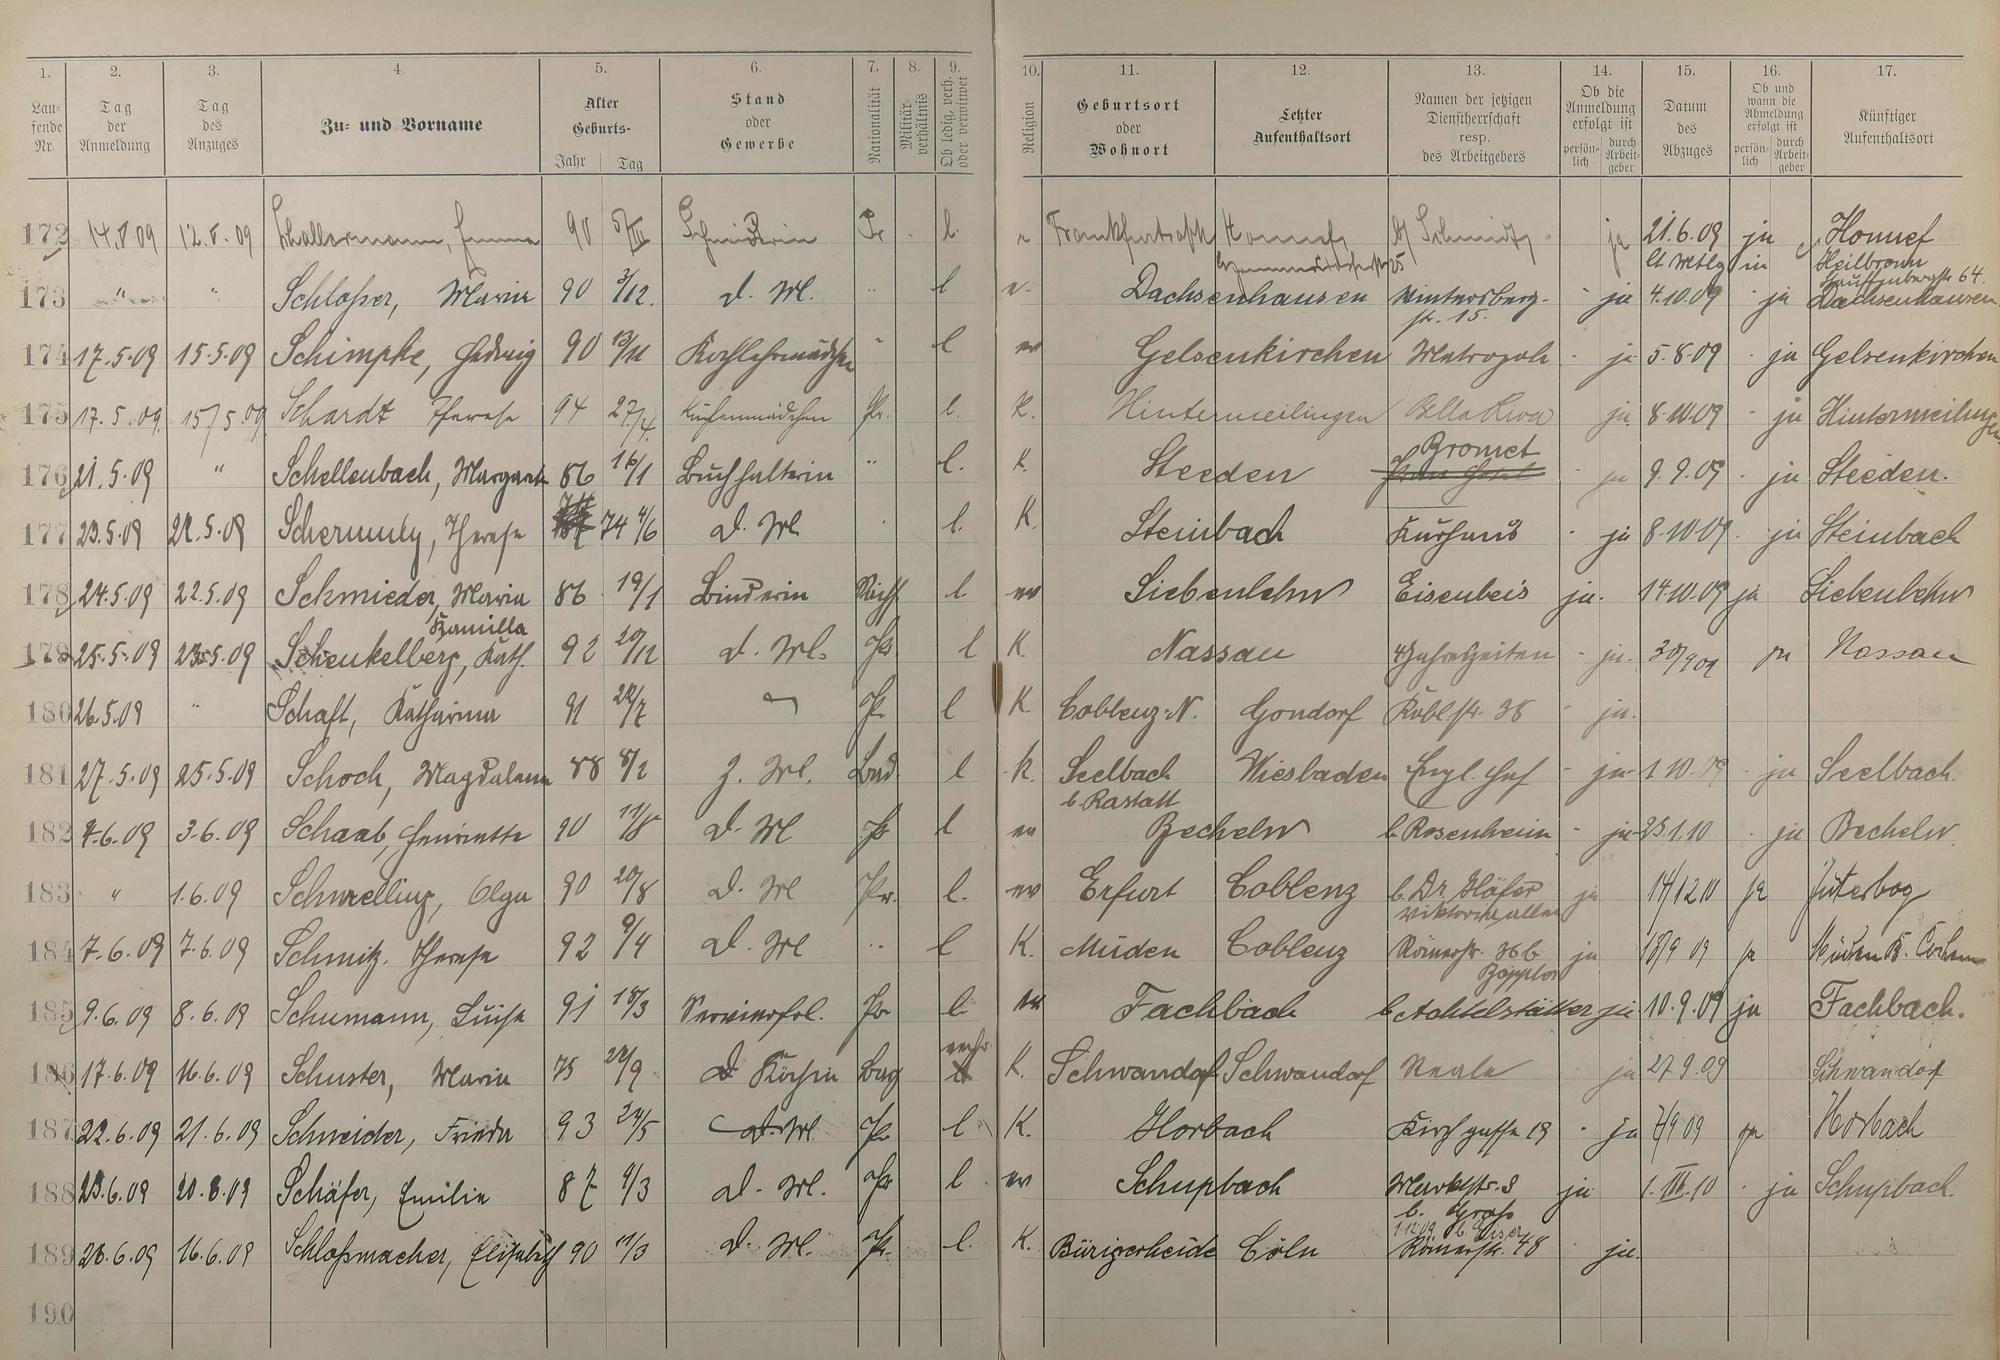 1. 2. 3. 4. 5. 6. 7. 8. 9. 10. 11. 12. 13. 14. 15. 16. 17.
Lau-fende Nr. Tag der Anmeldung Tag des Anzuges Zu- und Vorname Alter Geburts- Jahr Tag Stand oder Gewerbe Nationalität Militär-verhältnis Ob ledig, verh. oder verwitwet Religion Geburtsort oder Wohnort Letzter Aufenthaltsort Namen der jetzigen Dienstherrschaft resp. des Arbeitgebers Ob die Anmeldung erfolgt ist persön-lich durch Arbeit-geber Datum des Abzuges Ob und wann die Abmeldung erfolgt ist persön-lich durch Arbeit-geber Künftiger Aufenthaltsort
172 14.V.09 12.V.09 Emma 90 Schneiderin Pr l. Honnef Schmidt ja 21.6.09 ja Honnef
Heilbronn
173 " " Schlosser, Maria 90 3/12. d. M. " l Dachsenhausen Wintersberg-str. 15. ja 4.10.09 ja Dachsenhausen
174 17.5.09 15.5.09 Schimpke, Hedwig 90 13/11 Kochlehrmädchen " l ev Gelsenkirchen Metropole ja 5.8.09 ja Gelsenkirchen
175 17.5.09 15/5.09 Schardt Therese 94 27/4. Küchenmädchen Pr. l. K. Hintermeilingen Bella Riva ja 8.10.09 ja Hintermeilingen
176 21.5.09 " Schellenbach, Margarete 86 16/1 Buchhalterin " l. K. Steeden Bromet ja 9.9.09 ja Steeden.
177 23.5.09 22.5.09 Schermuly, Therese 74 4/6 d. M l. K. Steinbach Kurhaus ja 8.10.09 ja Steinbach
178 24.5.09 22.5.09 Schmieder, Maria Kamilla 86 19/1 Binderin l. ev Siebenlehn Eisenbeis ja. 14.10.09 ja Siebenlehn
179 25.5.09 23.5.09 Schenkelberg, Kath. 92 20/12 d. M. Pr l K. Nassau 4 Jahreszeiten ja. 30/9 09 ja Nassau
180 26.5.09 " Schaft, Katharina 91 22/7 Pr l K. Coblenz-N. Gondorf 38 ja.
181 27.5.09 25.5.09 Schoch, Magdalena 88 8/2 z. M. Bad l k. Seelbach b. Rastatt Wiesbaden Engl. Hof ja 1.10.09 ja Seelbach.
182 4.6.09 3.6.09 Schaab, Henriette 90 11/8 d. M Pr l ev Becheln b. Rosenheim ja 25.1.10 ja Becheln.
183 " 1.6.09 Schmelling, Olga 90 20/8 d. M Pr. l. ev Erfurt Coblenz b. Dr. Höfer Viktoriaallee ja 14/12 10 ja Jüterbog
184 7.6.09 7.6.09 Schmitz. Therese 92 9/4 d. M " l K. Müden Coblenz Römerstr. 36b ja 18/9 09 ja Müden B. Cochem
185 9.6.09 8.6.09 Schumann, Luise 91 18/3 Servierfrl. Pr l. ev Fachbach b. Achtelstätter ja 10.9.09 ja Fachbach.
186 17.6.09 16.6.09 Schuster, Maria 75 22/9 Köchin Bay verh. K. Schwandorf Schwandorf Neale ja 27.9.09 Schwandorf
187 22.6.09 21.6.09 Schneider, Frieda 93 24/5 d. M. Pr l K. Horbach Kirchgasse 19 ja 7/9 09 ja Horbach
188 23.6.09 20.6.09 Schäfer, Emilie 87 9/3 d. M. Pr l ev Schupbach Marktstr. 8 b. Gross ja 1.III.10 ja Schupbach.
189 28.6.09 16.6.09 Schlossmacher, Elisabeth 90 11/3 d. M. Pr. l. K. Bürigerheide Cöln Römerstr. 48 ja.
190